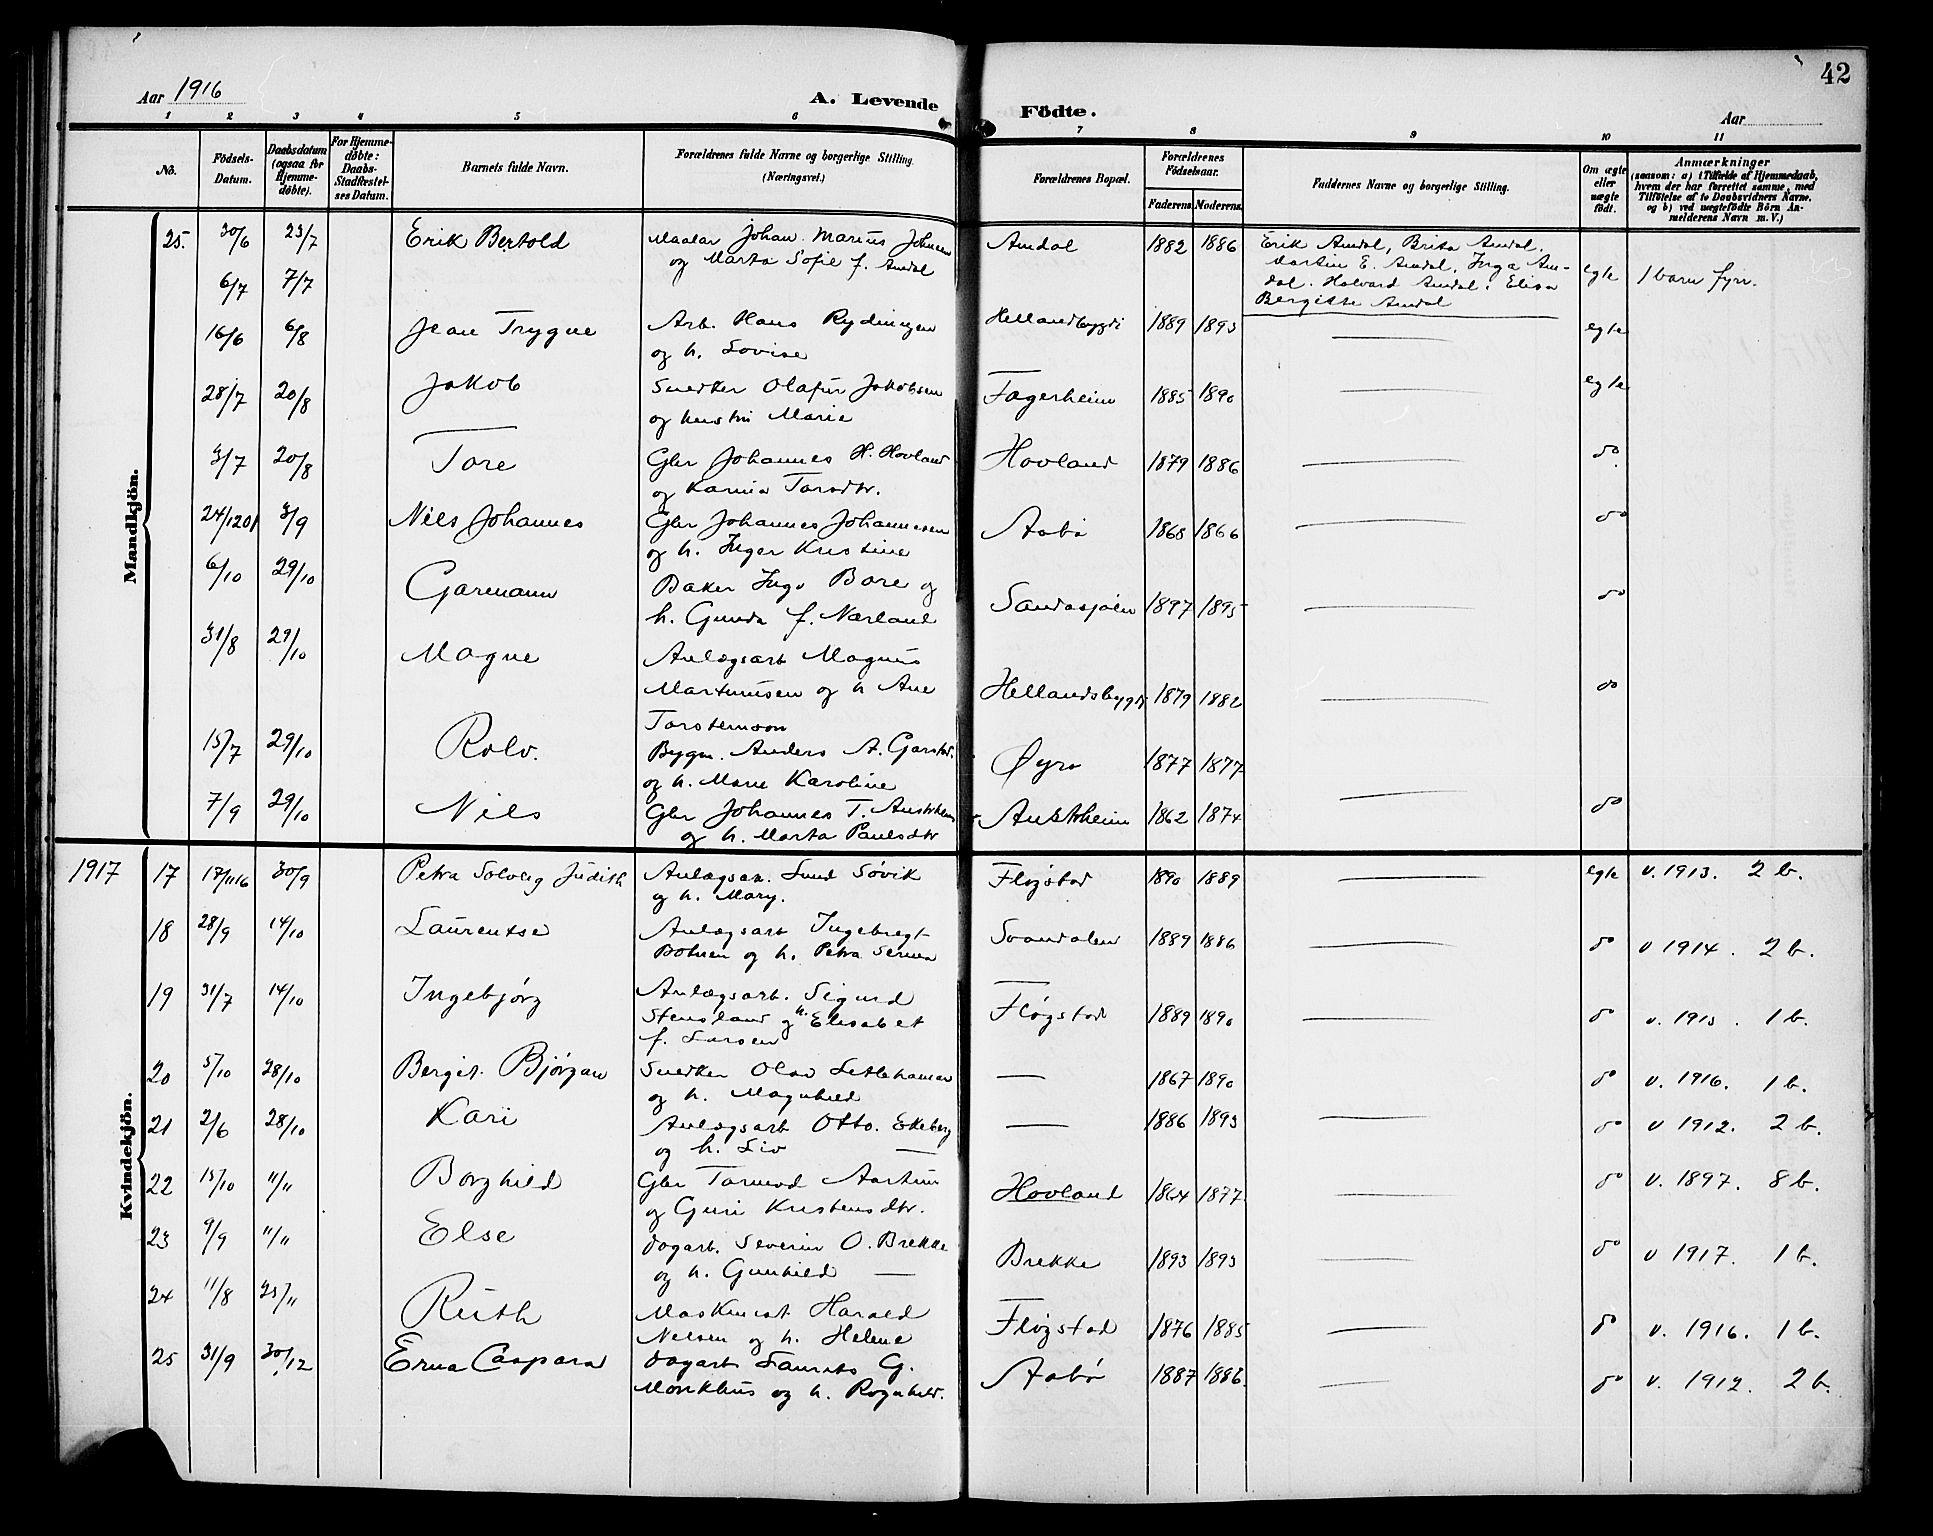 42
Aar 1916
A. Levende Födte.
Aar
1 2 3 4 5 6 7 8 9 10 11
No.
Födsels-Datum.
Daabsdatum (ogsaa for Hjemme-döbte).
For Hjemme-döbte: Daabs-Stadfæstel-ses Datum.
Barnets fulde Navn.
Forældrenes fulde Navne og borgerlige Stilling.
(Næringsvei.)
Forældrenes Bopæl.
Forældrenes Födselsaar.
Faderens. Moderens.
Faddernes Navne og borgerlige Stilling.
Om ægte eller uægte födt.
Anmærkninger
(saasom: a) i Tilfælde af Hjemmedaab,
hvem der har forrettet samme, med
Tilföielse af to Daabsvidners Navne,
og b) ved uægtefödte Börn An-
melderens Navn m. V.)
Mandkjön.
25. 30/6 23/7 Erik Bertold Maalar Johan Marius Johnsen Amdal 1882 1886 Erik Amdal, Brita Amdal,
og Marta Sofie f. Amdal Martin E. Amdal, Inga Am-
6/7 7/7 dal. Halvard Amdal. Elisa egte 1 barn fyrr.
Bergitte Amdal
16/6 6/8 Jean Trygve Arb. Hans Rydningen Hellandsbygdi 1889 1893 — egte
og h. Lovise
28/7 20/8 Jakob Snedker Olafur Jakobsen Fagerheim 1885 1890 — egte
og hustru Marie
3/7 20/8 Tore Gbr Johannes H. Hovland Hovland 1879 1886 — do
og Karina Torsdtr.
24/12 01 3/9 Nils Johannes Gbr Johannes Johannesen Aabø 1868 1866 — do
og h. Inger Kristine
6/10 29/10 Garmann Baker Inga Bore og Sandasjøen 1897 1895 — do
h. Gunda f. Nærland
31/8 29/10 Magne Anlægsarb Magnus
Martinusen og h Ane Hellandsbygd 1879 1882 — do
Torstensson
15/7 29/10 Rolv. Bygm. Anders A. Garstad Øyra 1877 1877
og h. Marie Karoline
7/9 29/10 Nils Gbr Johannes T. Austrheim Austrheim 1862 1874 — do
og h. Marta Paulsdtr
Kvindekjön.
1917 17 17/11 16 30/9 Petra Solveig Judith Anlægsarb. Lund Søvik Fløgstad 1890 1889 — egte v. 1913. 2 b.
og h. Mary.
18 28/9 14/10 Laurentse Anlægsarb Ingebregt Svandalen 1889 1886 — do v 1914. 2 b.
Botnen og h. Petra Serina
19 31/7 14/10 Ingebjørg Anlægsarb. Sigurd Fløgstad 1889 1890 — do v. 1915. 1 b.
Stensland og h. Elisabet
f. Larsen
20 5/10 28/10 Bergit Bjørgan Snedker Olav Litlehamar — 1867 1890 do v. 1916. 1 b.
og h. Magnhild
21 2/6 28/10 Kari Anlægsarb Otto. Ekeberg — 1886 1893 — do v 1912. 2 b.
og h. Liv —
22 15/10 11/11 Borghild Gbr Tormod Aartun Hovland 1864 1877 — do v. 1897. 8 b.
og Guri Kristensdtr.
23 9/9 11/11 Else Dagarb. Severin O. Brekke Brekke 1893 1893 — do v 1917. 1 b.
og h. Gunhild —
24 11/8 25/11 Ruth Maskinist Harald Fløgstad 1876 1885 — do v. 1916. 1 b.
Nelsen og h. Helene
25 31/9 30/12 Erna Caspara Dagarb Laurits G. Aabø 1887 1886. — do v. 1912. 2 b.
Monkhus og h. Ragnhild.